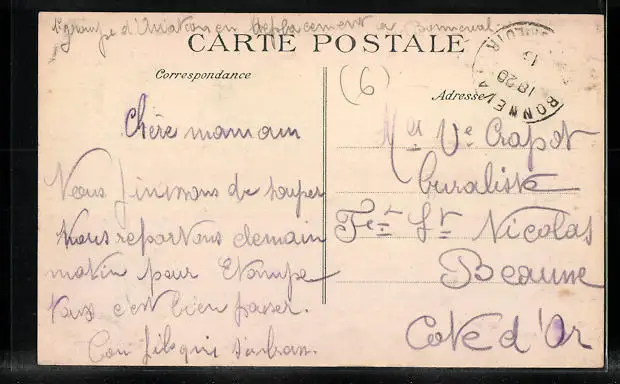 1er groupe d'Aviation en deplacement a Bonneval
CARTE POSTALE
Correspondance
Adresse
(6)
BONNEVAL
18 20
Chère maman
Nous finissons de souper
Nous repartons demain
matin pour Etampe
tout c'est bien passer.
Ton fils qui
Me Ve Crapot
buraliste
St Nicolas
Beaune
Cote d'Or